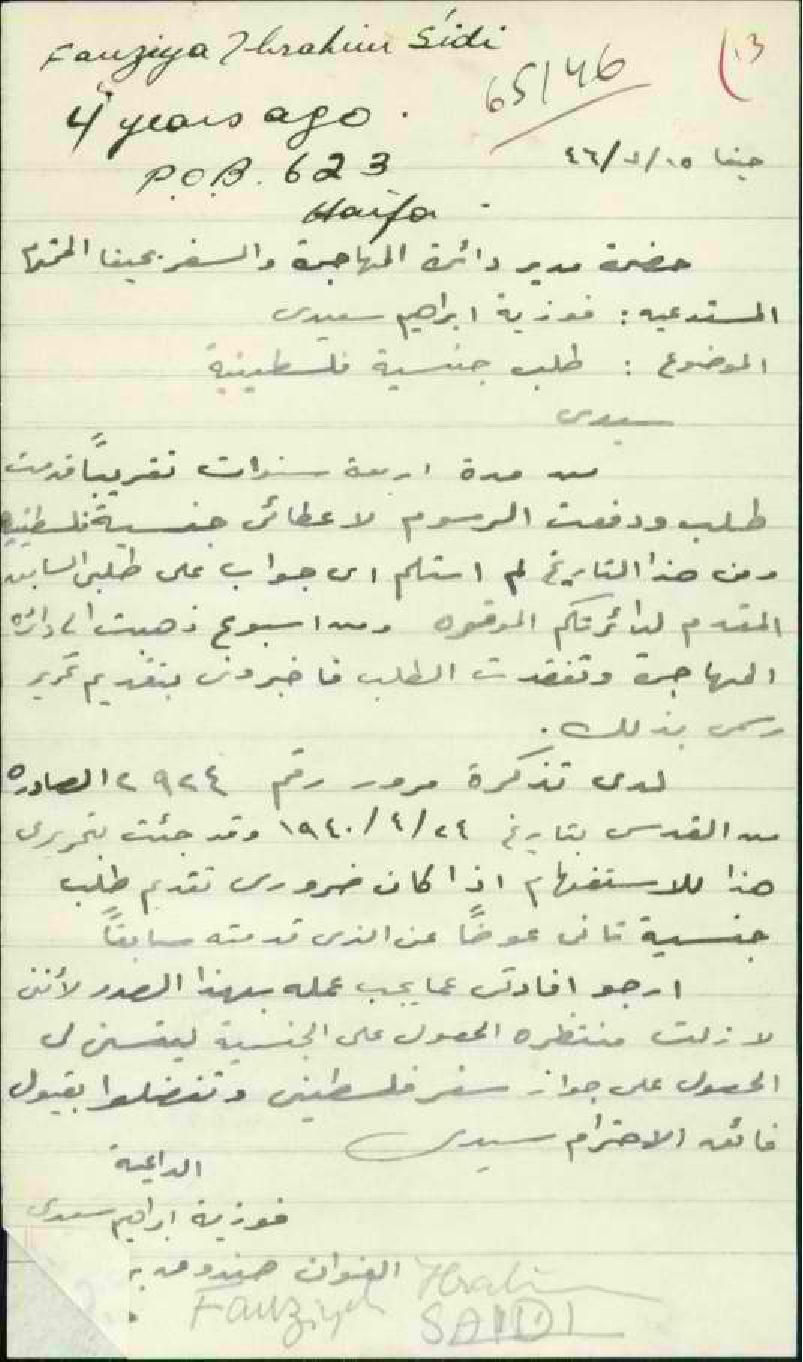 Fauziya Ibrahim Sidi
13
65146
4 years ago.
P.O.B. 623
Haifa.
حيفا ٤٦/٧/١٥
حضرة مدير دائرة المهاجرة والسفر بحيفا المحترم
المستدعيه : فوزية ابراهيم سعيدى
الموضوع : طلب جنسية فلسطينية
سيدى
من مدة اربعة سنوات تقريباً قدمت
طلب ودفعت الرسوم لاعطائى جنسية فلسطينيه
ومن هذا التاريخ لم استلم اى جواب على طلبى السابق
المقدم لدائرتكم الموقره ومن اسبوع ذهبت الى دائرة
المهاجرة وتفقدت الطلب فاخبرونى بتقديم تحرير
رسمى بذلك.
لدى تذكرة مرور رقم ٢٩٢٤ الصادره
من القدس بتاريخ ١٩٤٠/٤/٢٤ وقد جئت بتحريرى
هذا للاستفهام اذا كان ضرورى تقديم طلب
جنسية ثانى عوضاً عن الذى قدمته سابقاً
ارجو افادتى عما يجب عمله بهذا الصدد لأننى
لا زلت منتظره الحصول على الجنسية ليتسنى لى
الحصول على جواز سفر فلسطينى وتفضلوا بقبول
فائق الاحترام سيدى
الداعية
فوزية ابراهيم سعيدى
العنوان صندوق
Fauziyeh Ibrahim
SAIIDI